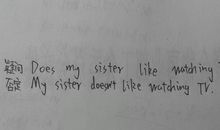 疑问 Does my sister like watching
否定 My sister doesn't like watching TV.